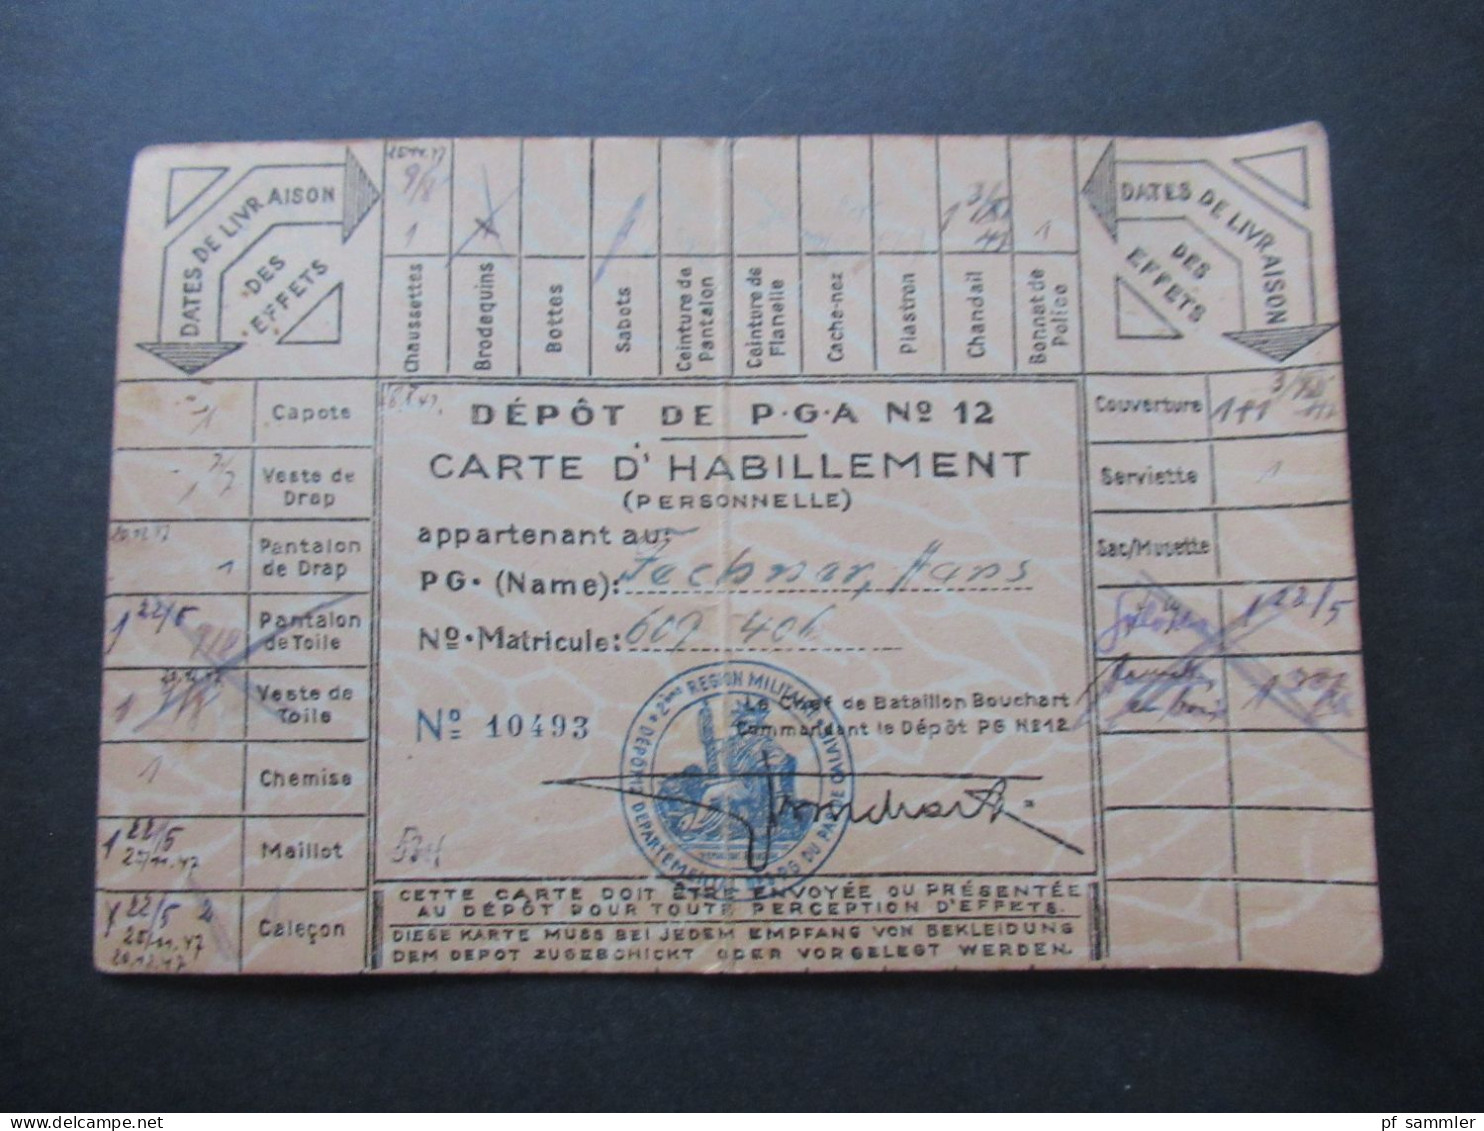 DATES DE LIVRAISON
DES EFFETS
25 11.47
9/8
1
Chaussettes
Brodequins
Bottes
Sabots
Ceinture de Pantalon
Ceinture de Flanelle
Cache-nez
Plastron
1
3/
47
Chandail
1
Bonnat de Police
DATES DE LIVRAISON
DES EFFETS
1 Capote
1 Veste de Drap
20.12.47
1 Pantalon de Drap
1 22/5 Pantalon de Toile
1 Veste de Toile
1 Chemise
1 22/5
25/11.47 Maillot
22/5 2
25/11.47
20.12.47 Caleçon
DÉPÔT DE P·G·A Nº 12
CARTE D'HABILLEMENT
(PERSONNELLE)
appartenant au:
PG· (Name): Fechner, Hans
Nº·Matricule: 609 406
Nº 10493
Le Chef de Bataillon Bouchart
Commandant le Dépôt PG Nº12
Bouchart
DÉPÔT 12 * 2ème REGION MILITAIRE
DEPARTEMENTAL DES PG DU PAS DE CALAIS
534
CETTE CARTE DOIT ÊTRE ENVOYÉE OU PRÉSENTÉE
AU DÉPÔT POUR TOUTE PERCEPTION D'EFFETS.
DIESE KARTE MUSS BEI JEDEM EMPFANG VON BEKLEIDUNG
DEM DEPOT ZUGESCHICKT ODER VORGELEGT WERDEN.
Couverture 1+1
Serviette 1
Sac/Musette
1 22/5
1
pf sammler